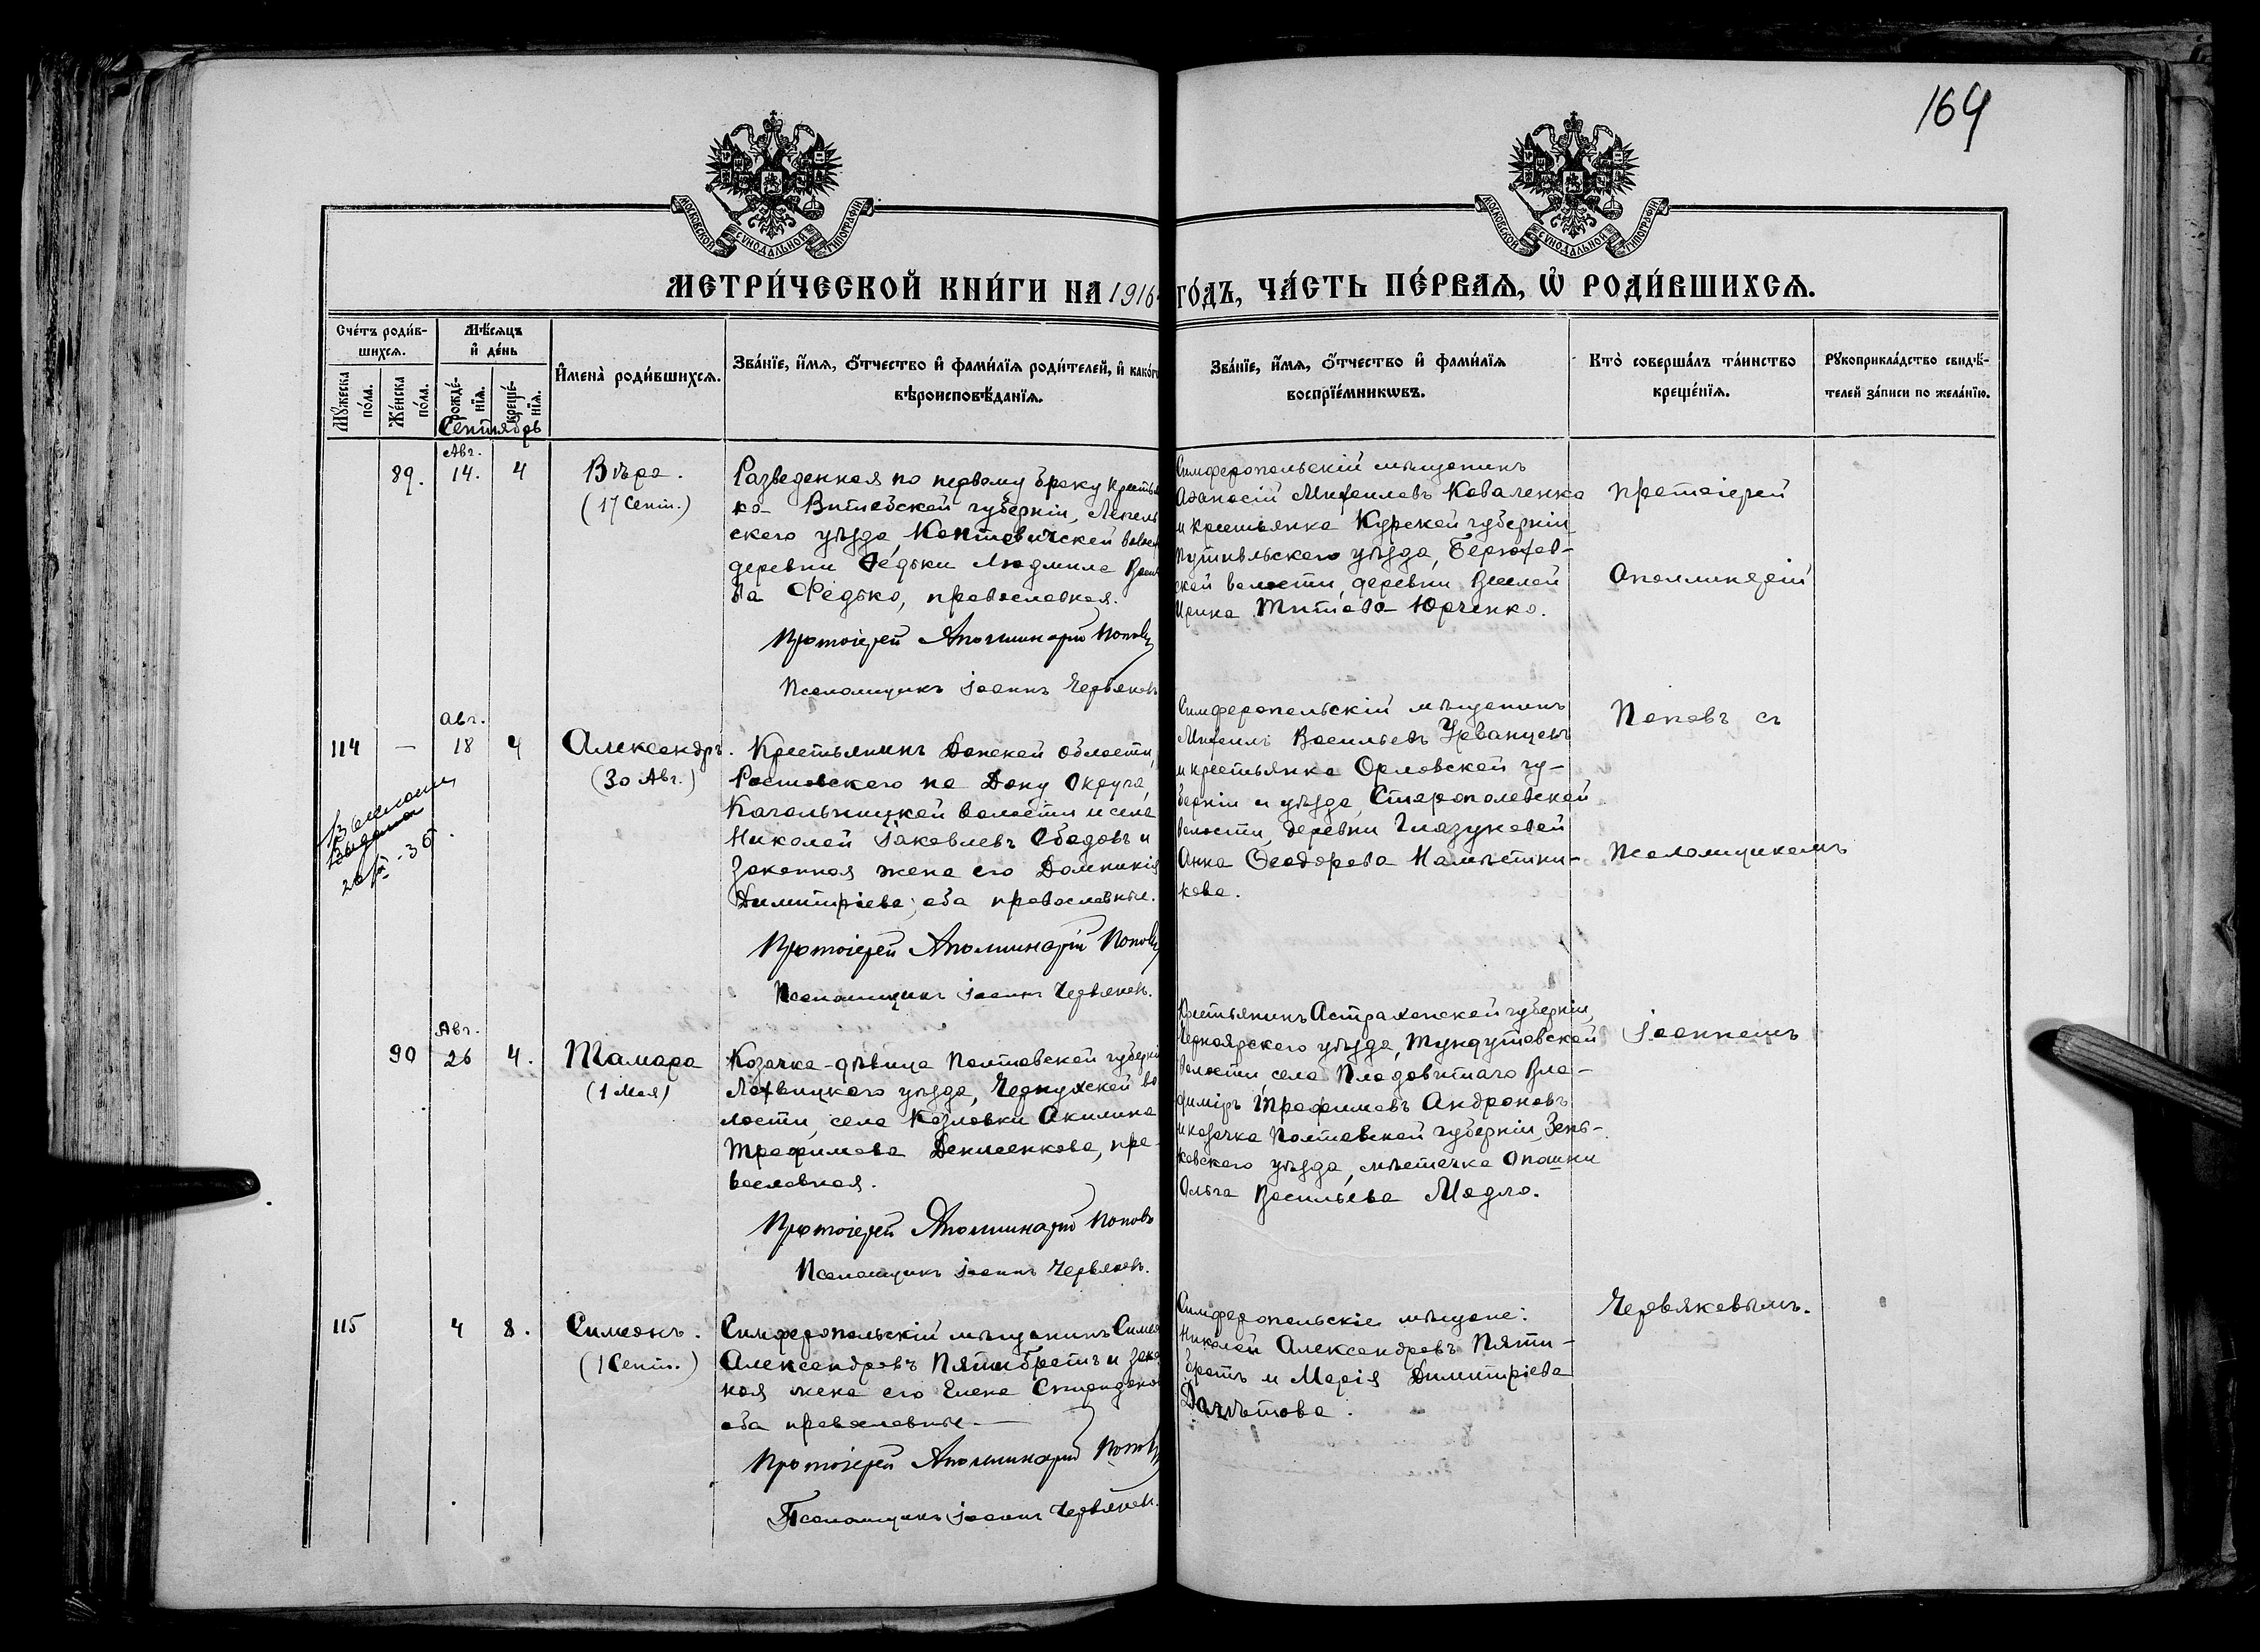 164
МОСКОВСКОЙ СѴНОДАЛЬНОЙ ТИПОГРАФІИ
МОСКОВСКОЙ СѴНОДАЛЬНОЙ ТИПОГРАФІИ
МЕТРИ́ЧЕСКОЙ КНИ́ГИ НА 1916 ГО́ДЪ, ЧА́СТЬ ПЕ́РВАѦ, Ѡ҆ РОДИ́ВШИХСѦ.
Сче́тъ роди́в-
шихсѧ.
Мꙋ́жеска
по́ла.
Же́нска
по́ла.
Мѣ́сѧцъ
и҆ де́нь
рожде́-
нїѧ.
креще́-
нїѧ.
Сентябрь
И҆мена̀ роди́вшихсѧ.
Зва́нїе, и҆́мѧ, ѻ҆́тчество и҆ фами́лїѧ роди́телей, и҆ како́гѡ
вѣроисповѣ́данїѧ.
Зва́нїе, и҆́мѧ, ѻ҆́тчество и҆ фами́лїѧ
воспрїе́мникѡвъ.
Кто̀ соверша́лъ та́инство
креще́нїѧ.
Рꙋкоприкла́дство свидѣ́-
телей за́писи по жела́нїю.
89.
Авг.
14.
4
Вѣра.
(17 Сент.)
Разведенная по первому браку кресть
ка Витебской губерніи, Лепель
скаго уѣзда, волос
деревни Людмила
ва Федько, православная.
Протоіерей Аполлинарій Поповъ
Псаломщикъ Іоаннъ Червяковъ
Симферопольскій мѣщанинъ
Аѳанасій Михаиловъ Коваленко
и крестьянка Курской губерніи
Путивльскаго уѣзда,
ской волости, деревни
Ирина Титова Юрченко.
Протоіерей
Аполлинарій
114
—
авг.
18
4
Александръ.
(30 Авг.)
Крестьянинъ Донской области,
Ростовскаго на Дону Округа,
Кагальницкой волости и села
Николай Іаковлевъ Ободовъ и
законная жена его Домникія
Димитріева; оба православные.
Протоіерей Аполлинарій Поповъ
Псаломщикъ Іоаннъ Червяковъ.
Симферопольскій мѣщанинъ
Михаилъ Васильевъ
и крестьянка Орловской гу-
берніи и уѣзда,
волости, деревни Глазуновой
Анна Ѳеодорова Намѣстни-
кова.
Поповъ съ
Псаломщикомъ
90
Авг.
26
4.
Тамара
(1 Мая)
Козачка-дѣвица Полтавской губерні
Лохвицкаго уѣзда, Чернухской во
лости, села Козловки Акилина
Трофимова Денисенкова, пра-
вославная.
Протоіерей Аполлинарій Поповъ
Псаломщикъ Іоаннъ Червяковъ.
Крестьянинъ Астраханской губерніи,
Черноярскаго уѣзда, Тундутовской
волости, села Плодовитаго Вла-
диміръ Трофимовъ Андроновъ
и козачка Полтавской губерніи, Зень-
ковскаго уѣзда, мѣстечка Опошни
Ольга Васильева Мадло.
Іоанномъ
115
4
8.
Симеонъ.
(1 Сент.)
Симферопольскій мѣщанинъ Симео
Александровъ Пятибратъ и зако
ная жена его Елена Спиридоно
оба православные.—
Протоіерей Аполлинарій Поповъ
Псаломщикъ Іоаннъ Червяковъ.
Симферопольскіе мѣщане:
Николай Александровъ Пяти-
братъ и Марія Димитріева
Далѣтова.
Червяковымъ.